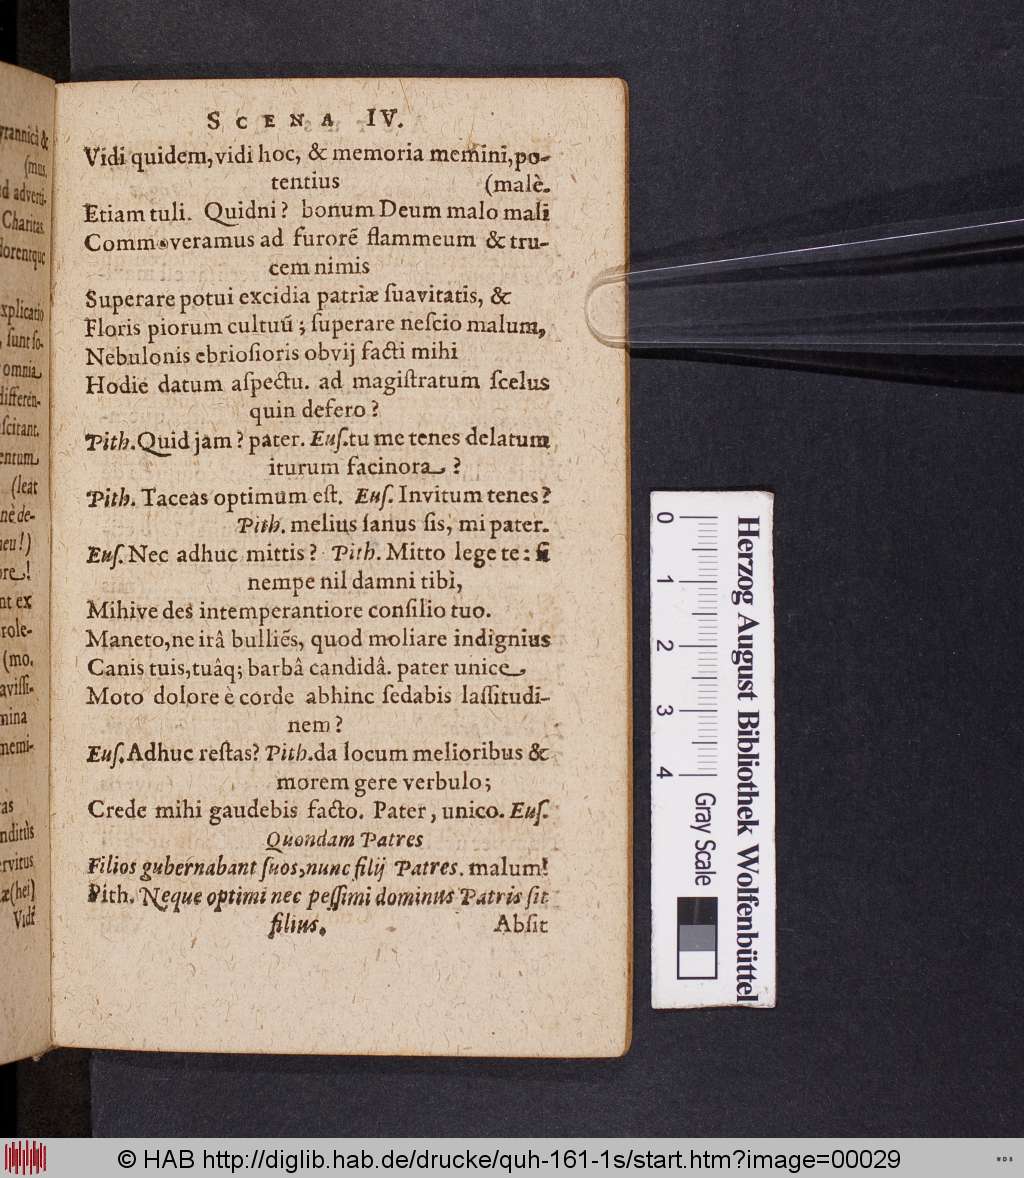 yrannicâ &
(mus,
d adverti-
Charitas.
lorentque
xplicatio
, sunt so-
omnia
differen-
scitant.
entum
(leat
nè de-
neu!)
ore!
nt ex
role-
(mo.
avissi-
mina
memi-
as
nditùs
rvitus
æ (hei)
Vidi
SCENA IV.
Vidi quidem, vidi hoc, & memoria memini, po-
tentius (malè.
Etiam tuli. Quidni? bonum Deum malo mali
Commoveramus ad furorē flammeum & tru-
cem nimis
Superare potui excidia patriæ suavitatis, &
Floris piorum cultuū; superare nescio malum,
Nebulonis ebriosioris obvij facti mihi
Hodie datum aspectu. ad magistratum scelus
quin defero?
Pith. Quid jam? pater. Eus. tu me tenes delatum
iturum facinora?
Pith. Taceas optimum est. Eus. Invitum tenes?
Pith. melius sanus sis, mi pater.
Eus. Nec adhuc mittis? Pith. Mitto lege te: si
nempe nil damni tibi,
Mihive des intemperantiore consilio tuo.
Maneto, ne irâ bulliēs, quod moliare indignius
Canis tuis, tuâq; barbâ candidâ. pater unice
Moto dolore è corde abhinc sedabis lassitudi-
nem?
Eus. Adhuc restas? Pith. da locum melioribus &
morem gere verbulo;
Crede mihi gaudebis facto. Pater, unico. Eus.
Quondam Patres
Filios gubernabant suos, nunc filij Patres. malum!
Pith. Neque optimi nec pessimi dominus Patris sit
filius. Absit
0 1 2 3 4
Gray Scale
Herzog August Bibliothek Wolfenbüttel
© HAB http://diglib.hab.de/drucke/quh-161-1s/start.htm?image=00029